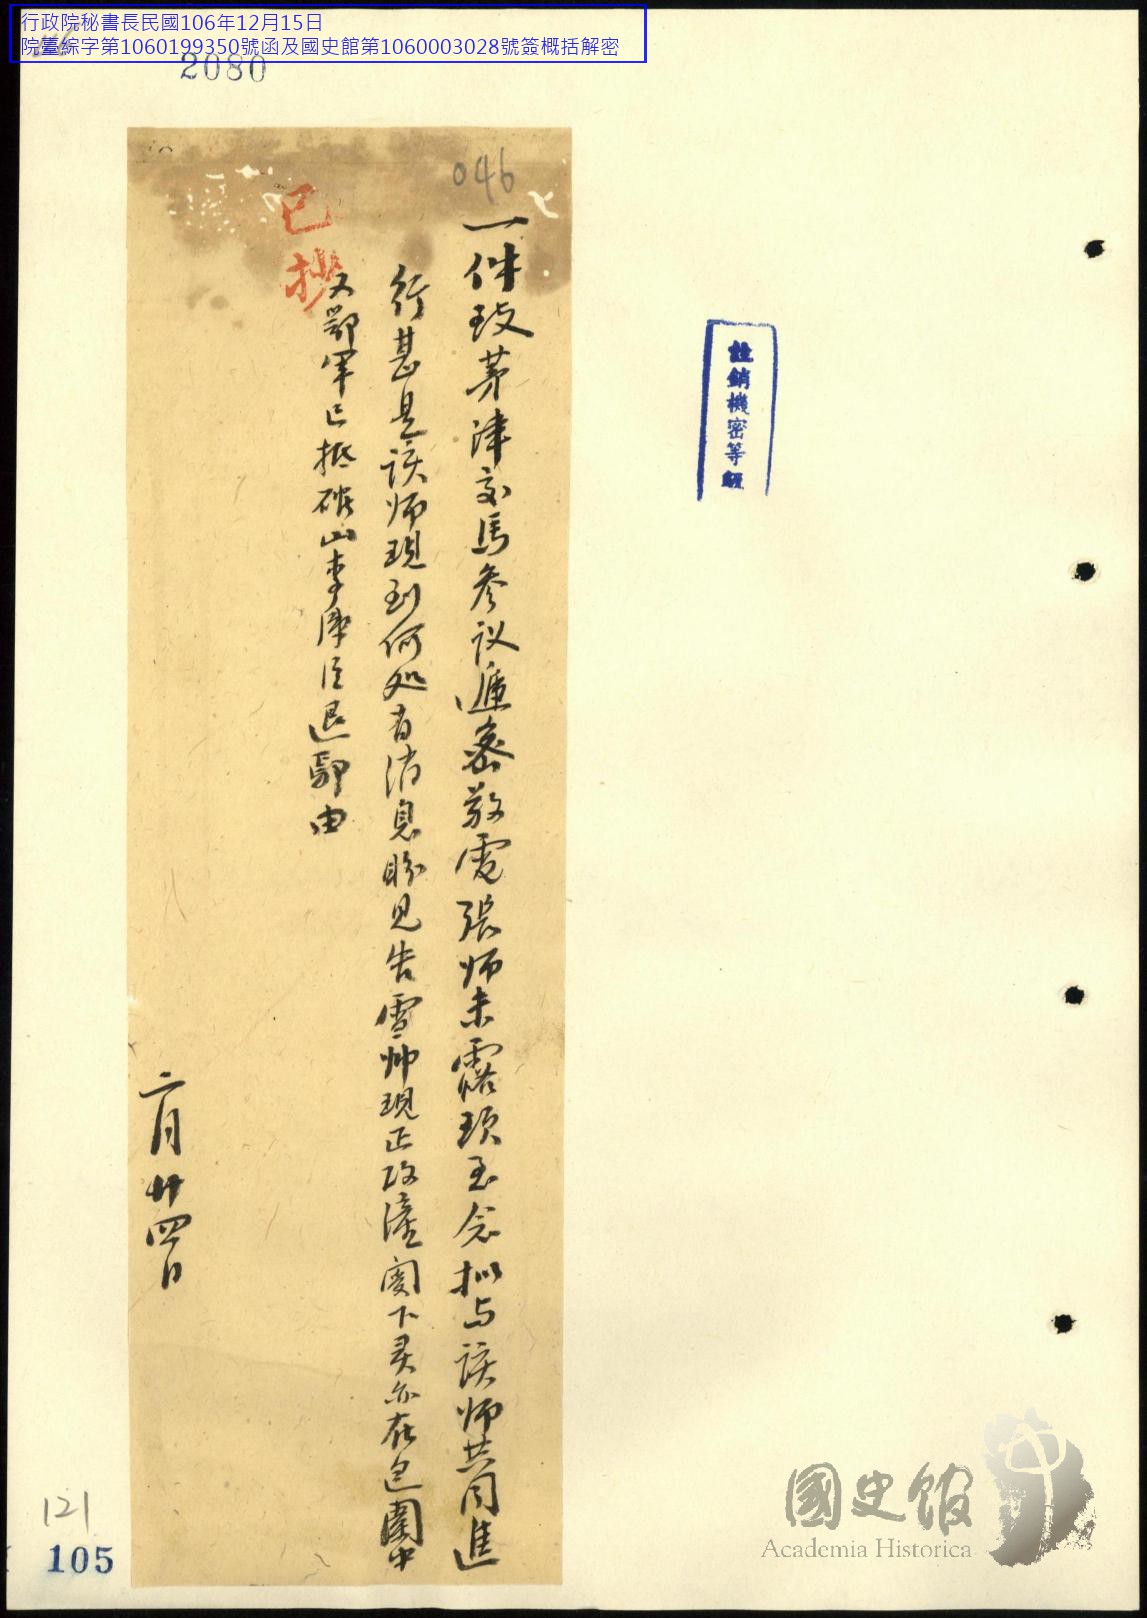 行政院秘書長民國106年12月15日
院臺綜字第1060199350號函及國史館第1060003028號簽概括解密
2080
046
已抄
一件致茅津交馬參议遞密敬電張师未露頭至念拟与该师共同進
行甚是该师現到何处有消息盼見告雪帅現正攻潼阌卞灵亦在包圍中
又鄂軍已抵確山李虞臣退郾由
二月廿四日
註銷機密等級
121
105
國史館
Academia Historica